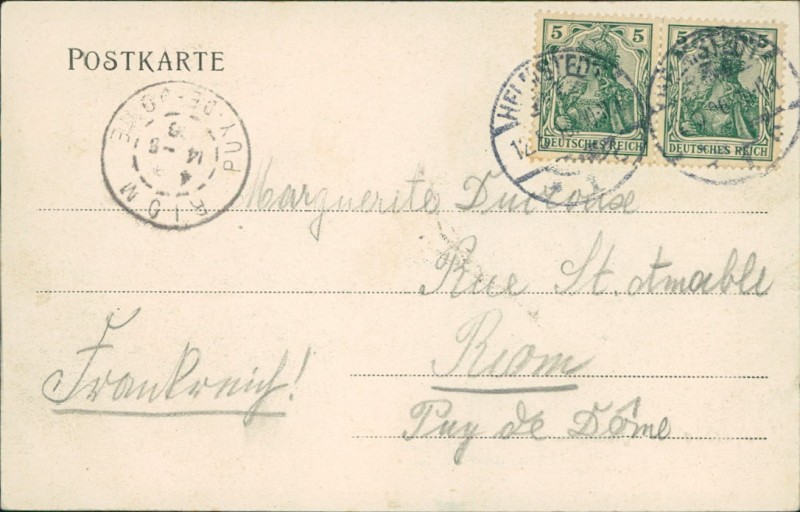 POSTKARTE
5 5 5 5
DEUTSCHES REICH DEUTSCHES REICH
HELMSTEDT
12
RIOM
PUY-DE-DOME
14
Marguerite
Rue St. Amable
Riom
Frankreich!
Puy de Dôme